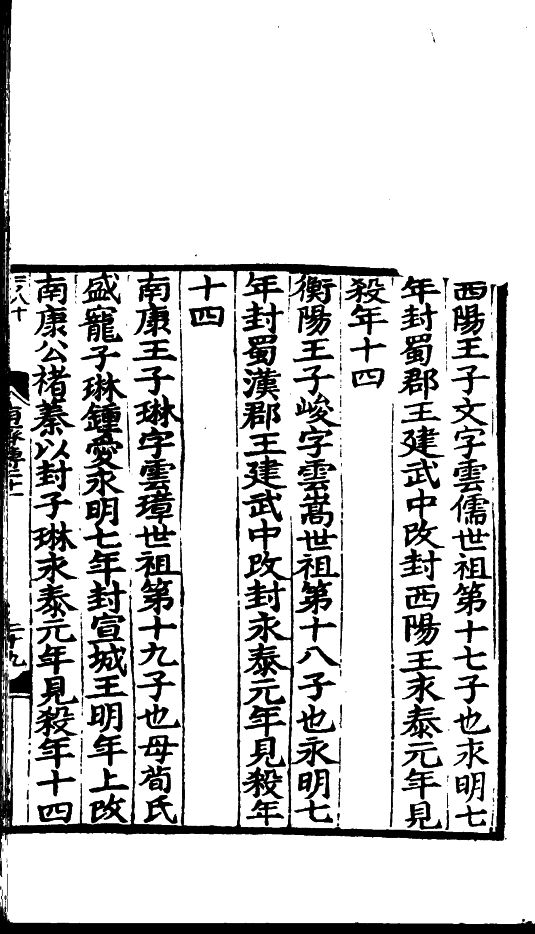 西陽王子文字雲儒世祖第十七子也永明七
年封蜀郡王建武中改封西陽王永泰元年見
殺年十四
衡陽王子峻字雲嵩世祖第十八子也永明七
年封蜀漢郡王建武中改封永泰元年見殺年
十四
南康王子琳字雲璋世祖第十九子也母荀氏
盛寵子琳鍾愛永明七年封宣城王明年上改
南康公褚蓁以封子琳永泰元年見殺年十四
二十九